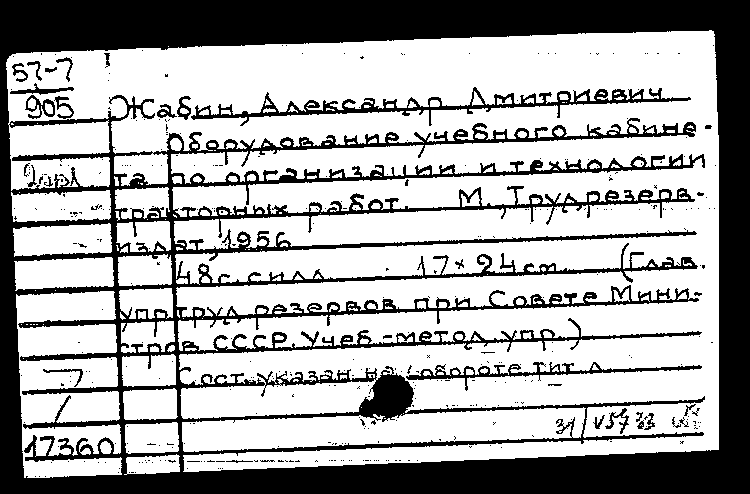 57-7
905 Жабин, Александр Дмитриевич
Оборудование учебного кабине-
та по организации и технологии
тракторных работ. М., Трудрезерв-
издат, 1956
48 с. с илл. 17×24 см. (Глав.
упр. труд. резервов при Совете Мини-
стров СССР. Учеб.-метод. упр.)
Сост. указан на обороте тит. л.
31/V 57
17360